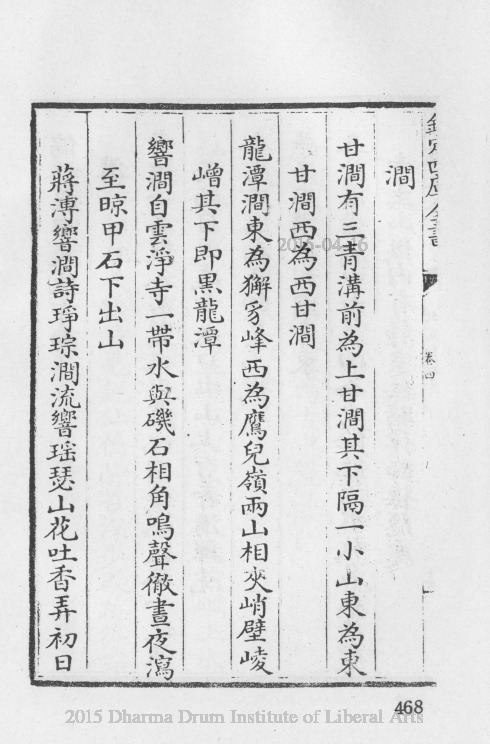 欽定四庫全書
卷四
澗
甘澗有三青溝前為上甘澗其下隔一小山東為東
甘澗西為西甘澗
龍潭澗東為獬豸峰西為鷹兒嶺兩山相夾峭壁崚
嶒其下即黑龍潭
響澗自雲淨寺一帶水與磯石相角鳴聲徹晝夜瀉
至晾甲石下出山
蔣溥響澗詩琤琮澗流響瑶瑟山花吐香弄初日
468
2015-04-16
2015 Dharma Drum Institute of Liberal Arts